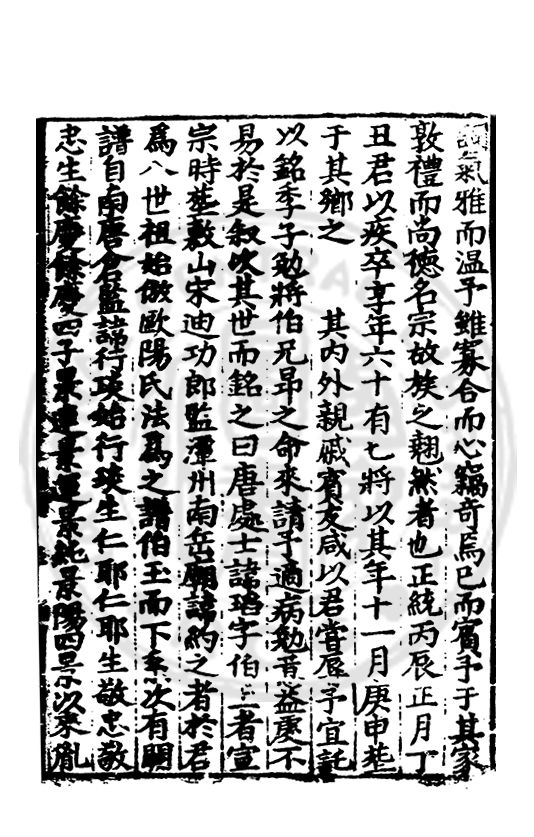 氣雅而温予雖寡合而心竊奇焉已而賔予于其家
敦禮而尚德名宗故族之翹然者也正統丙辰正月丁
丑君以疾卒享年六十有七將以其年十一月庚申塟
于其鄉之 其内外親戚賔友咸以君嘗辱予宜託
以銘季子勉將伯兄昂之命來請予適病勉意益䖍不
易於是叙次其世而銘之曰唐處士諱瑫字伯 者宣
宗時塟敷山宋迪功郎監潭州南岳廟諱約之者於君
爲八世祖始倣歐陽氏法爲之譜伯玉而下系次有闕
譜自南唐倉監諱行琰始行琰生仁耶仁耶生敬忠敬
忠生餘慶餘慶四子景連景運景純景陽四景以來胤